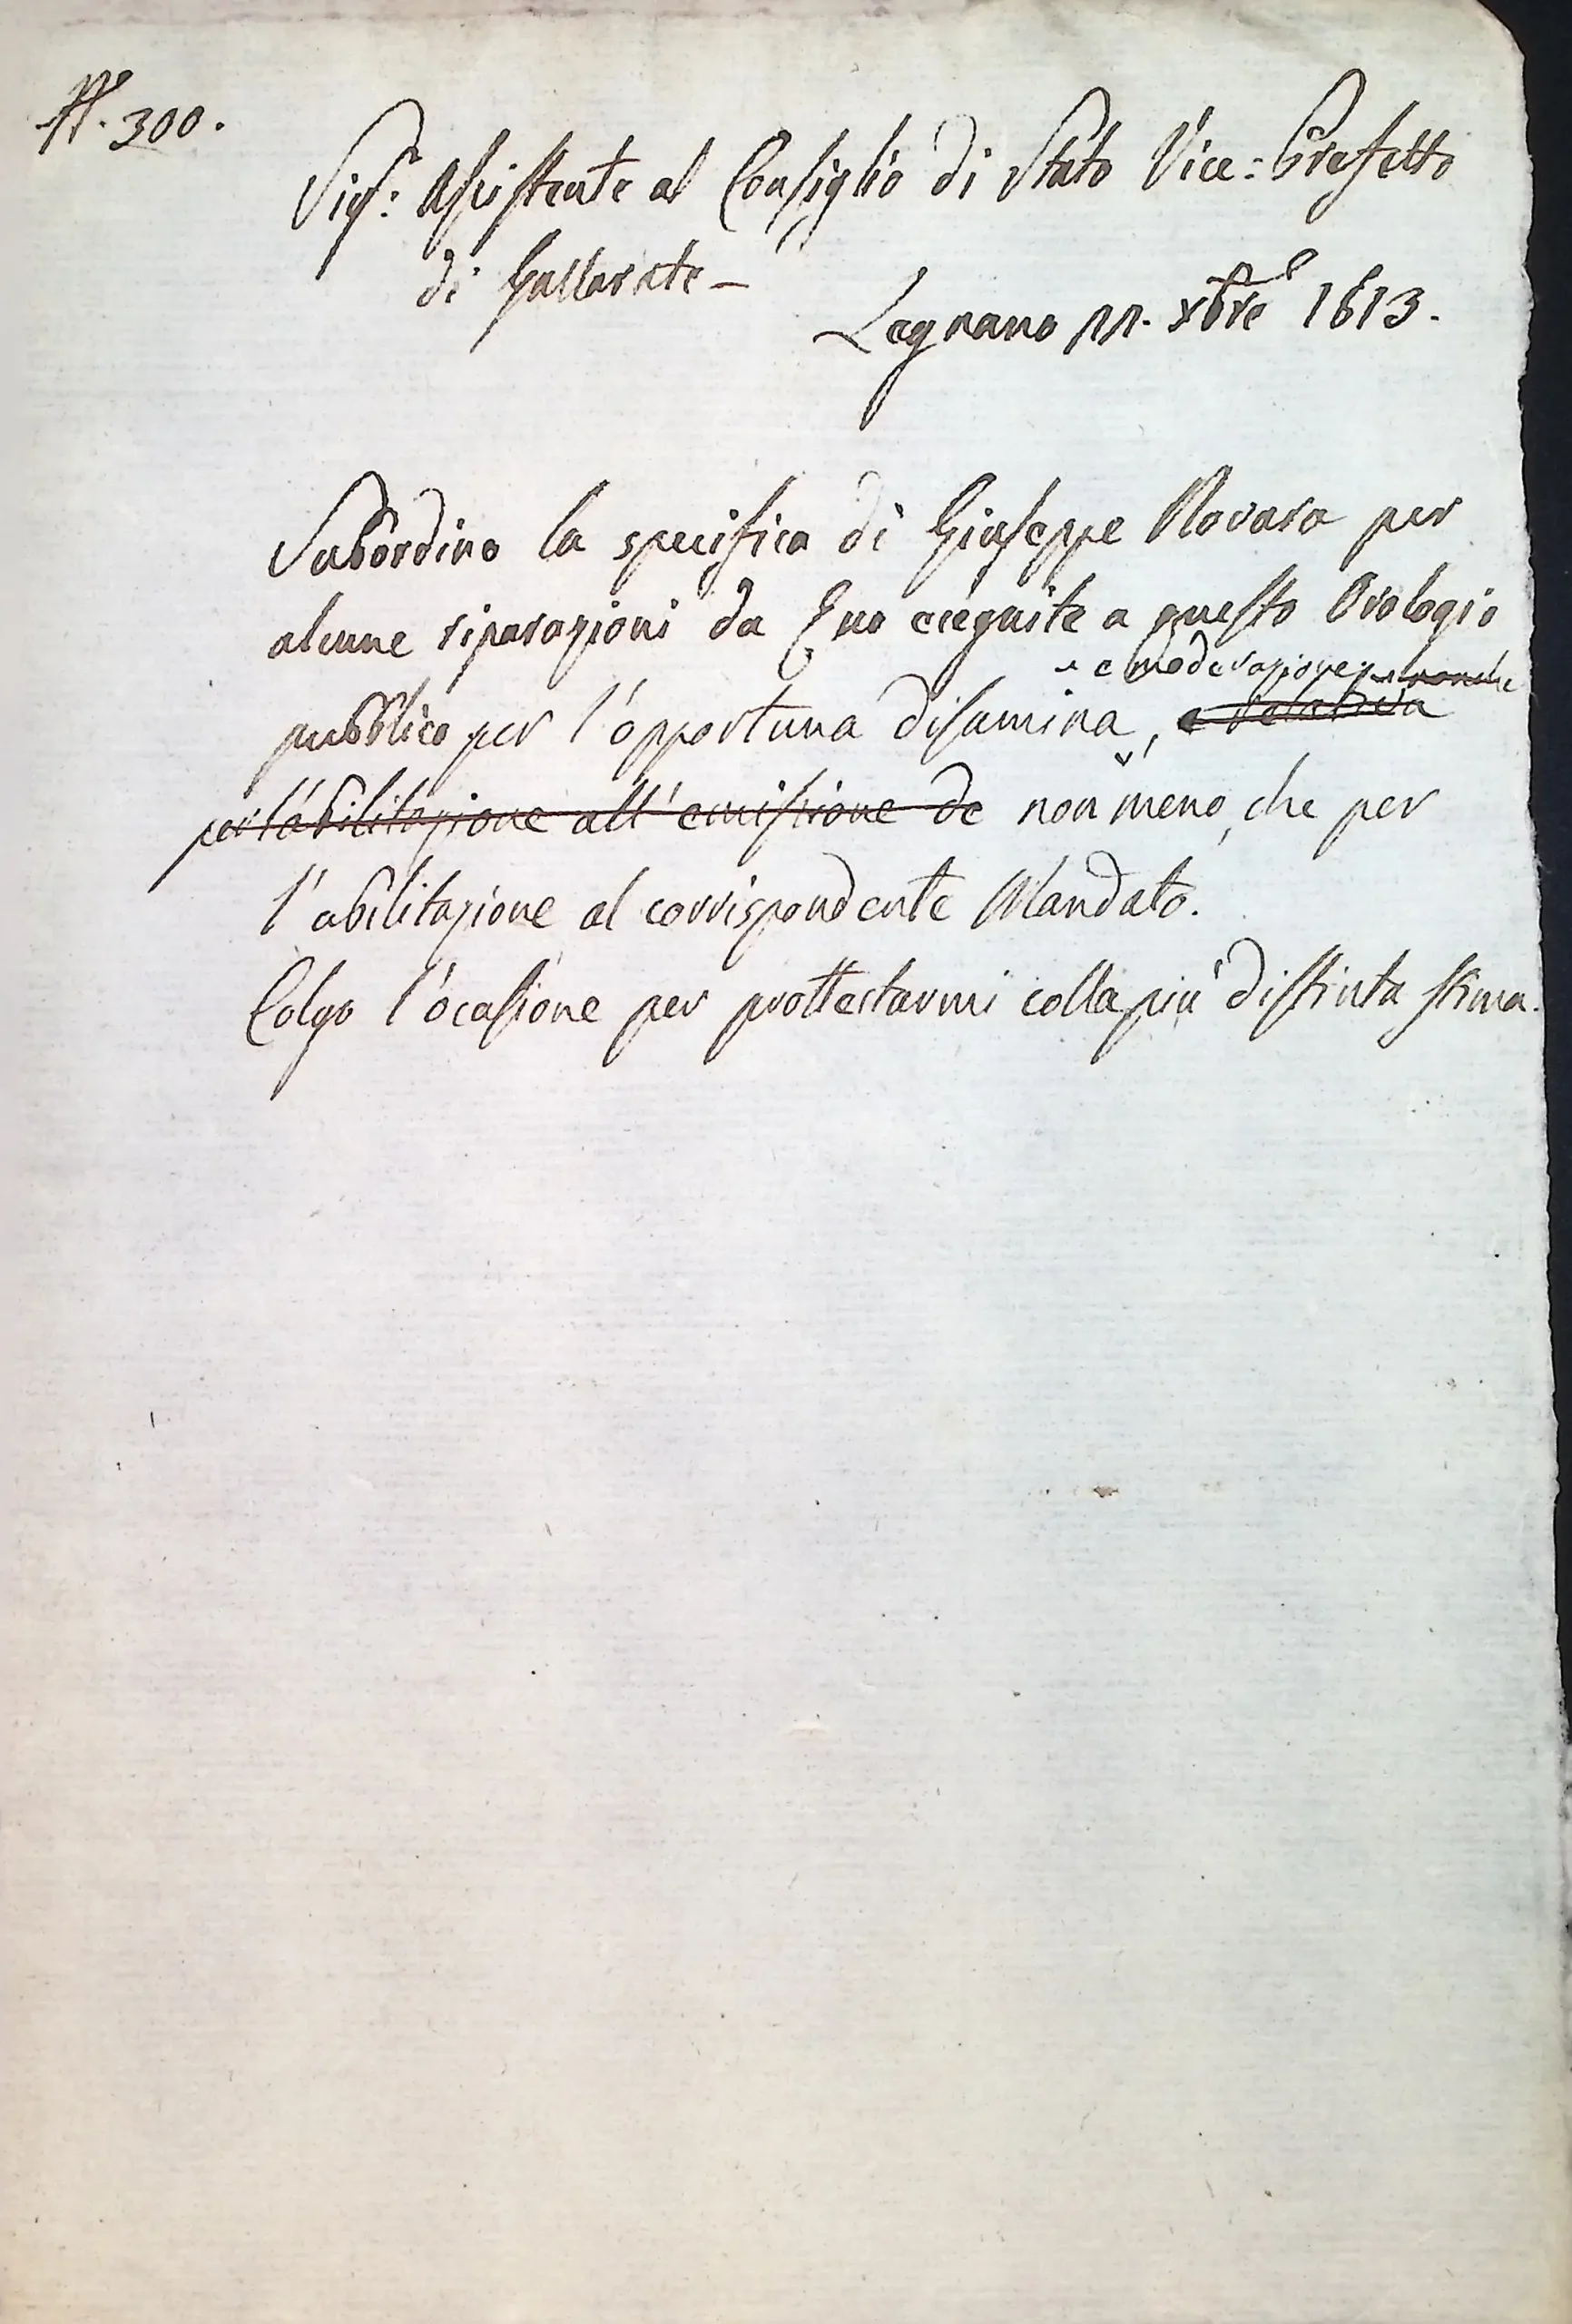 N. 300.
Sigr: Assistente al Consiglio di Stato Vice: Prefetto
di Gallarate -
Legnano 11. Xbre 1813.
Subordino la specifica di Giuseppe Novara per
alcune riparazioni da Esso eseguite a questo Orologio
e moderazione, nonche
pubblico per l'opportuna disamina, e relativa
per l'abilitazione all'emissione de non meno, che per
l'abilitazione al corrispondente Mandato.
Colgo l'ocasione per prottestarmi colla più distinta stima.